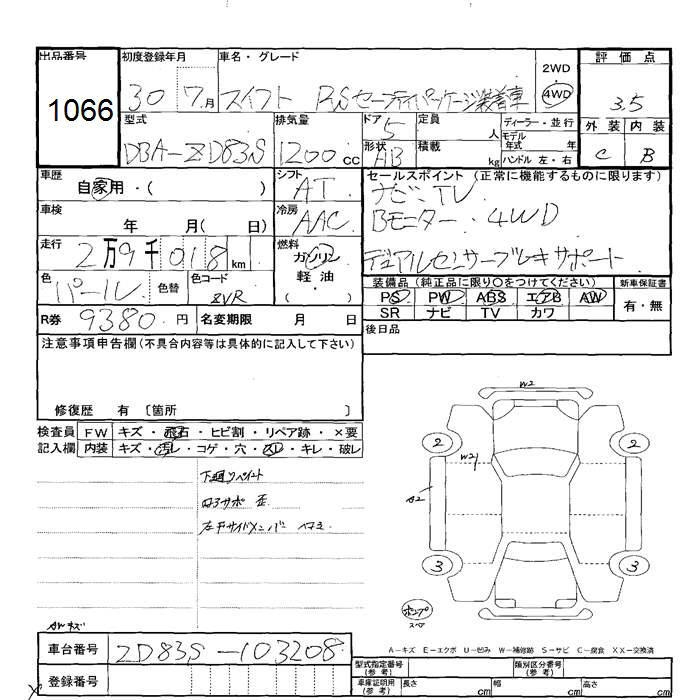 出品番号 初度登録年月 車名・グレード 評価点
1066 30 7月 スイフト RSセーフティパッケージ装着車 2WD 4WD 3.5
型式 排気量 ドア 定員 ディーラー・並行 外装 内装
DBA-ZD83S 1200cc 5 人 モデル年式 年 C B
形状 AB 積載 kg ハンドル 左・右
車歴 シフト セールスポイント (正常に機能するものに限ります)
自家用・( ) AT ナビ TV
車検 冷房 Bモニター・4WD
年 月( 日) AAC
走行 燃料 デュアルセンサーブレーキサポート
2万9千018km ガソリン
軽油・
色 色替 色コード 装備品(純正品に限り○をつけてください) 新車保証書
パール ZVR PS PW ABS エアB AW 有・無
SR ナビ TV カワ
R券 9380円 名変期限 月 日 後日品
注意事項申告欄(不具合内容等は具体的に記入して下さい)
修復歴 有 〔箇所 〕
検査員 FW キズ・飛石・ヒビ割・リペア跡・×要
記入欄 内装 キズ・汚レ・コゲ・穴・スレ・キレ・破レ
W2
2 2
W21
A2
3 3
下廻リペイント
コアサポ 歪
左Fサイドメンバー
ポンプ
スペア
AWキズ
A-キズ E-エクボ U-凹み W-補修跡 S-サビ C-腐食 XX-交換済
車台番号 ZD83S-103208
型式指定番号(参考) 類別区分番号(参考)
登録番号
車庫証明用(参考) 長さ cm 幅 cm 高さ cm